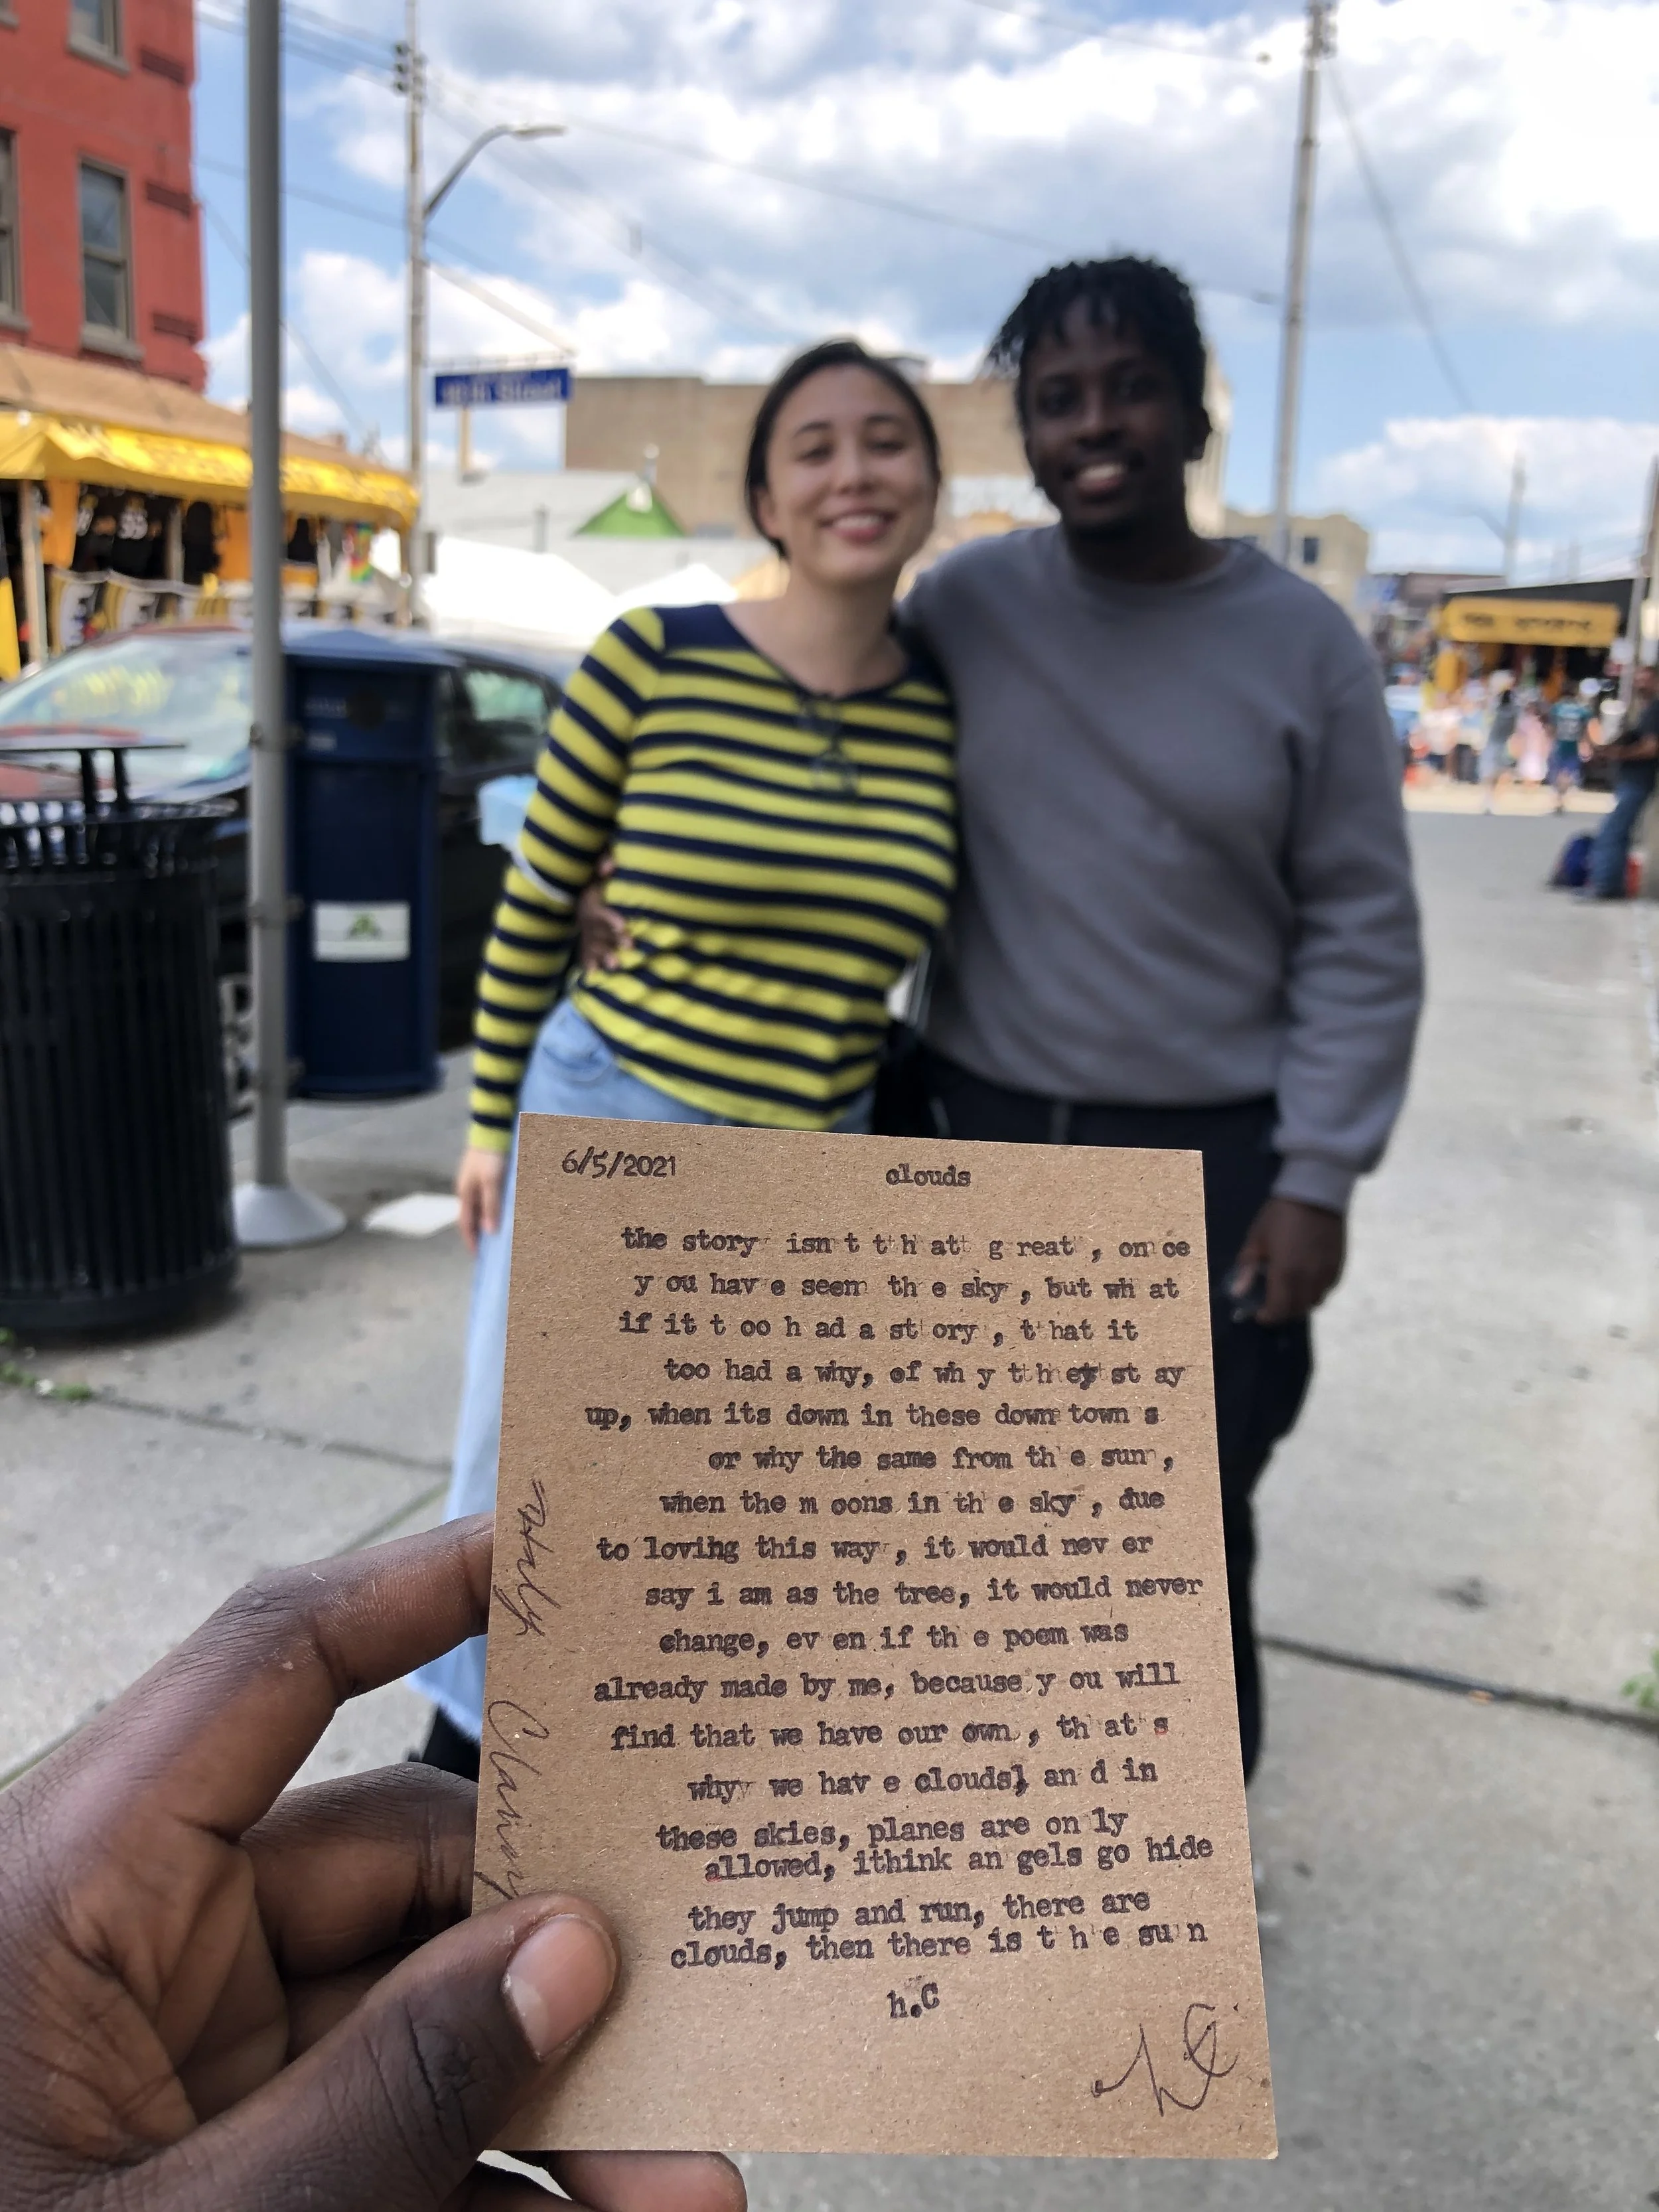 6/5/2021
clouds
the story isn t t h at g reat , on ce
y ou hav e seem th e sky , but wh at
if it t oo h ad a st ory , t hat it
too had a why, of wh y t h ey st ay
up, when its down in these down town s
or why the same from th e sun ,
when the m oons in th e sky , due
to loving this way , it would nev er
say i am as the tree, it would never
change, ev en if th e poem was
already made by me, because y ou will
find that we have our own , th at s
why we hav e clouds, an d in
these skies, planes are on ly
allowed, ithink an gels go hide
they jump and run, there are
clouds, then there is t h e su n
h.C